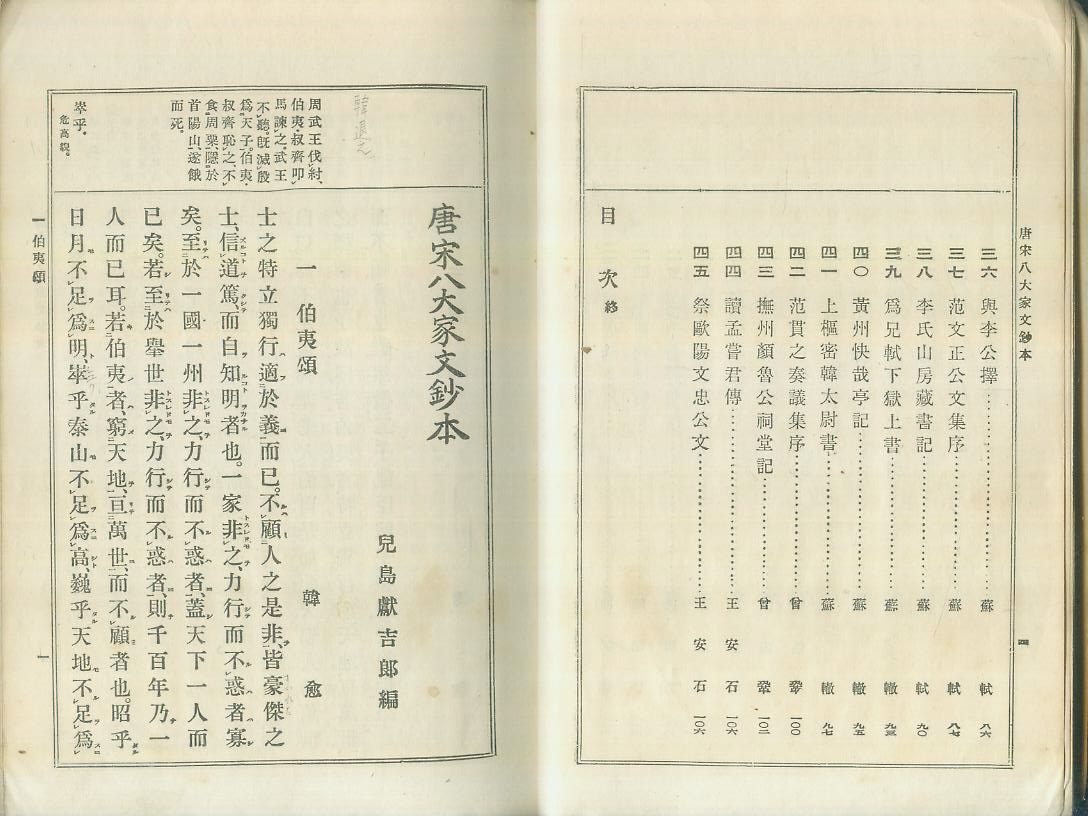 唐宋八大家文鈔本
四
三六 與李公擇……………………蘇軾 八六
三七 范文正公文集序……………………蘇軾 八七
三八 李氏山房藏書記……………………蘇軾 九〇
三九 爲兄軾下獄上書……………………蘇轍 九三
四〇 黃州快哉亭記……………………蘇轍 九五
四一 上樞密韓太尉書……………………蘇轍 九七
四二 范貫之奏議集序……………………曾鞏 一〇〇
四三 撫州顏魯公祠堂記……………………曾鞏 一〇二
四四 讀孟嘗君傳……………………王安石 一〇六
四五 祭歐陽文忠公文……………………王安石 一〇六
目次終
韓退之
周武王伐紂、
伯夷・叔齊叩
馬諫之。武王
不聽。旣滅殷
爲天子。伯夷・
叔齊恥之、不
食周粟、隱於
首陽山、遂餓
而死。
崒乎。
危高貌。
唐宋八大家文鈔本
兒島獻吉郎編
一 伯夷頌 韓愈
士之特立獨行、適於義而已。不顧人之是非、皆豪傑之
士、信道篤、而自知明者也。一家非之、力行而不惑者寡
矣。至於一國一州非之、力行而不惑者、蓋天下一人而
已矣。若至於擧世非之、力行而不惑者、則千百年乃一
人而已耳。若伯夷者、窮天地、亘萬世、而不顧者也。昭乎
日月不足爲明、崒乎泰山不足爲高、巍乎天地不足爲
一 伯夷頌
一